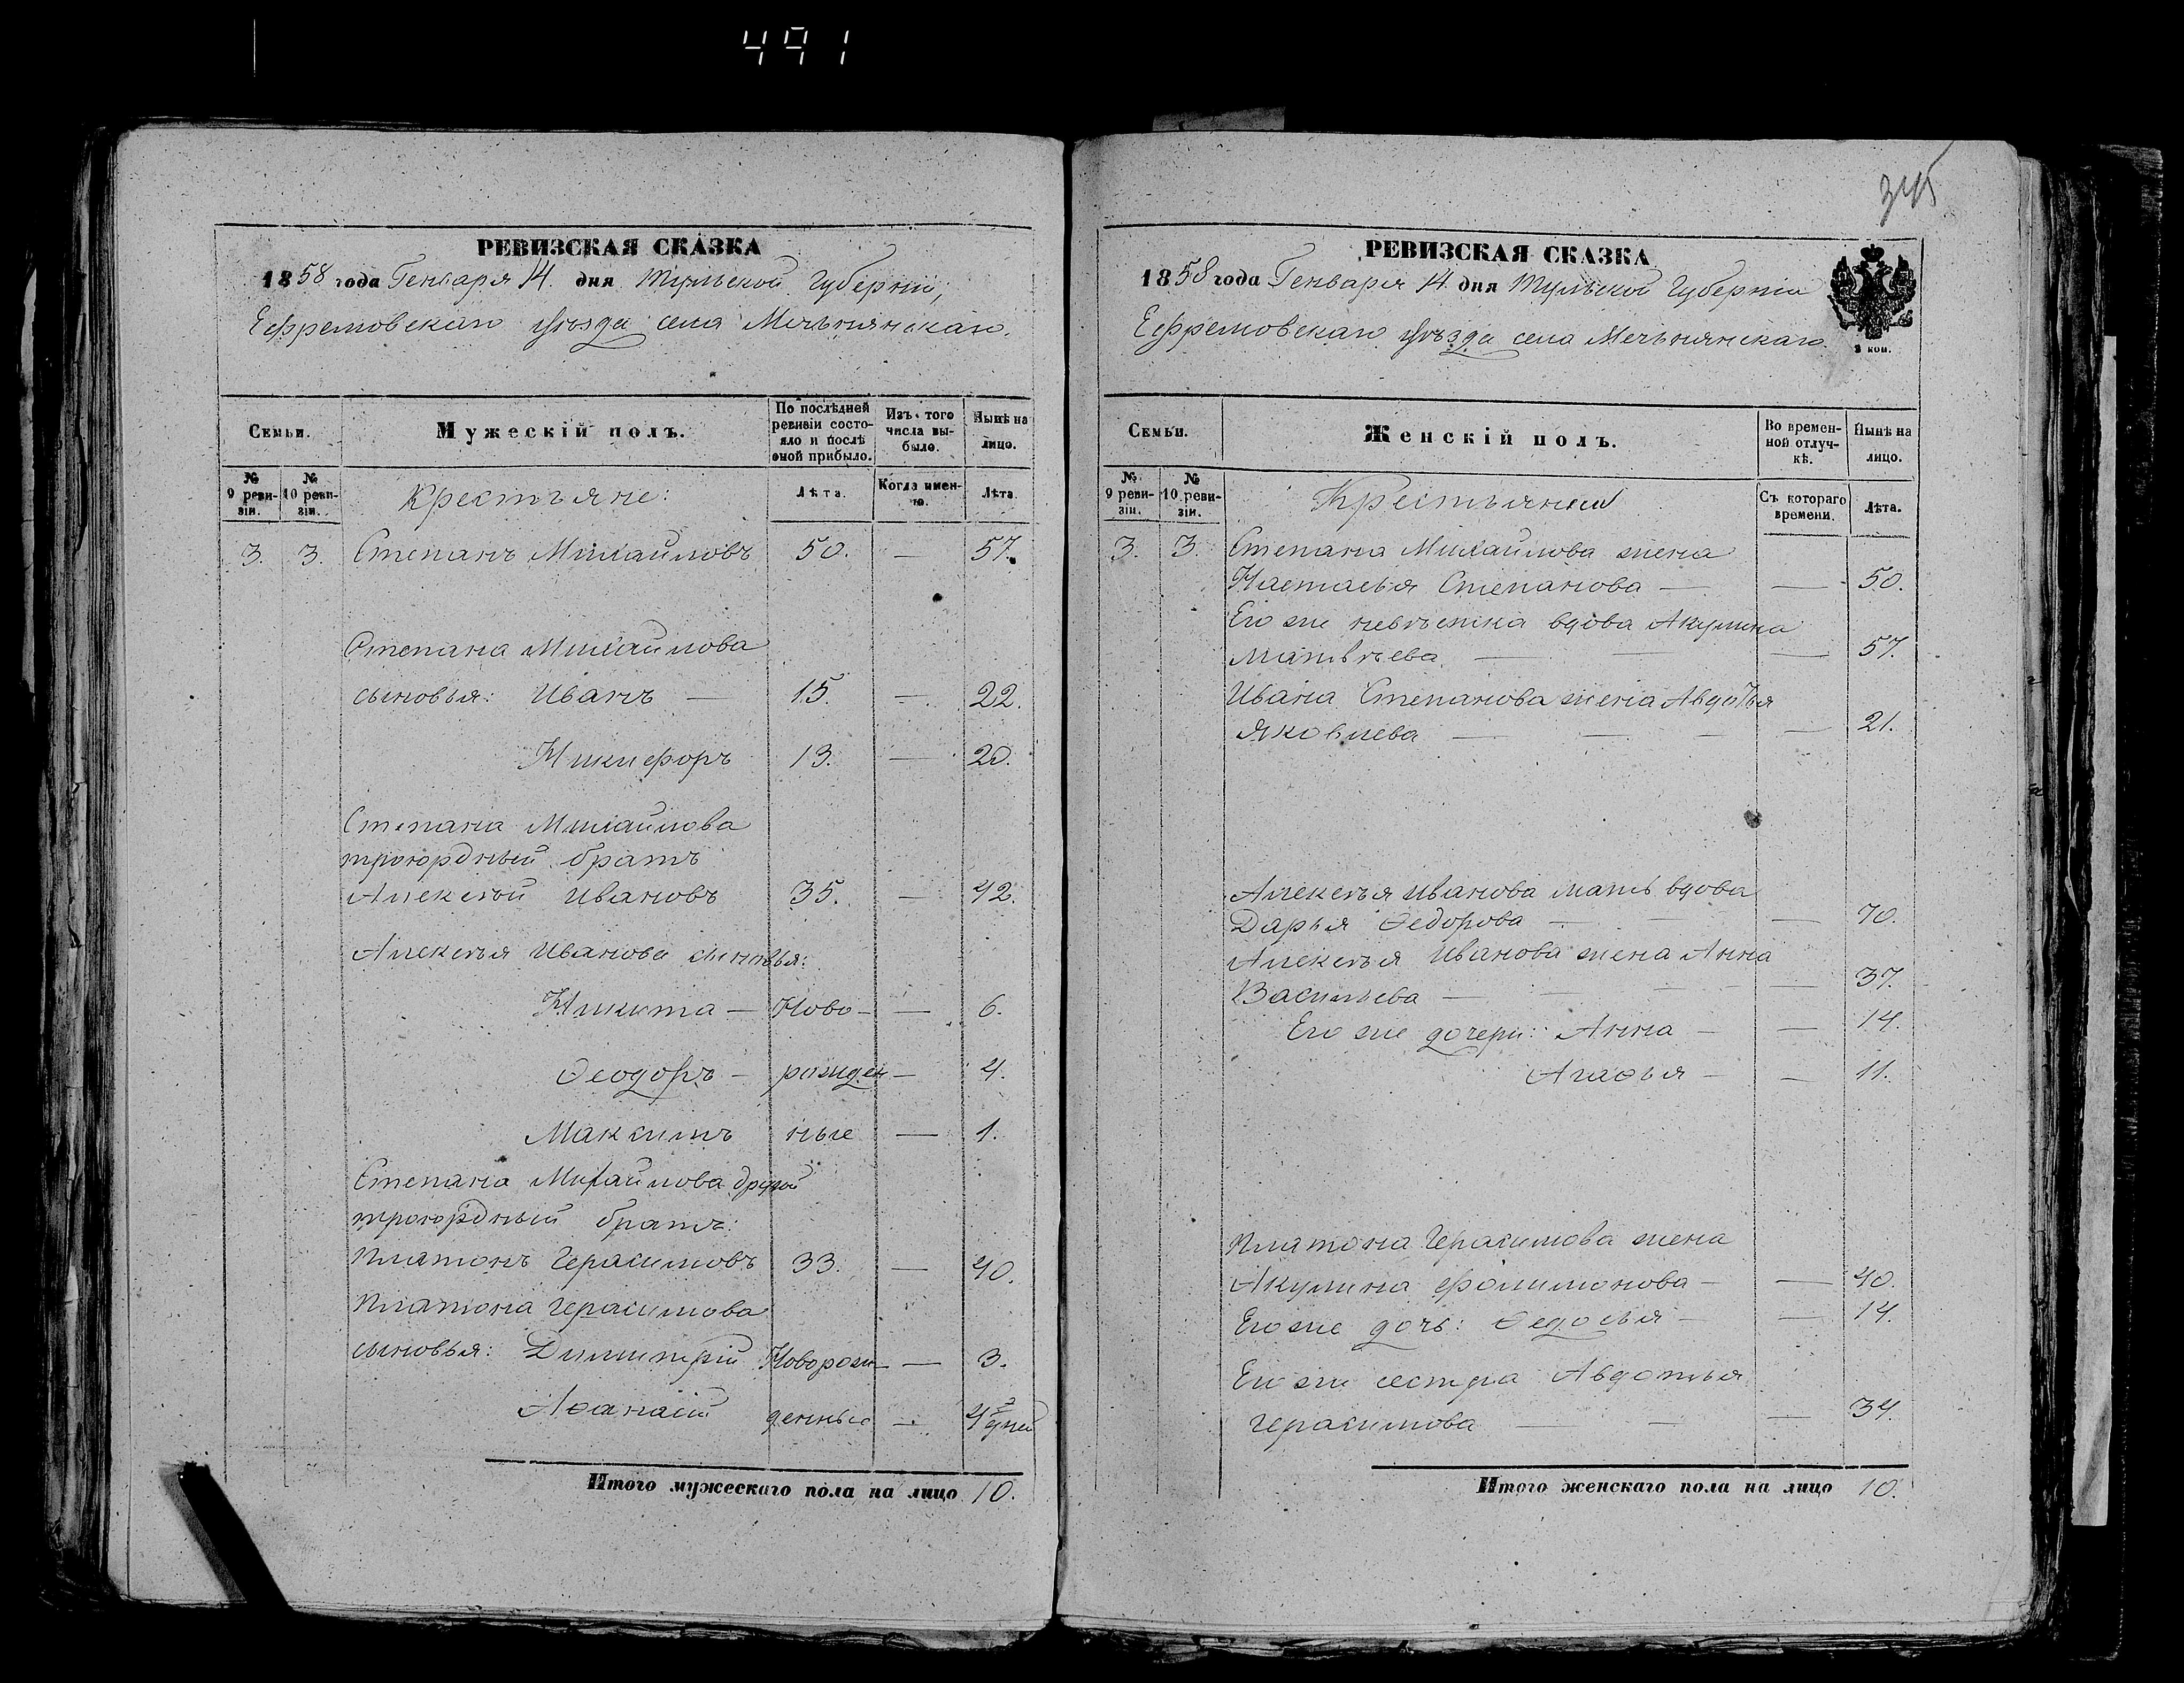 491
345
РЕВИЗСКАЯ СКАЗКА
1858 года Генваря 14. дня Тульской Губерніи,
Ефремовскаго уѣзда села Мечнянскаго.
Семьи.
Мужескій полъ.
По послѣдней ревизіи состояло и послѣ оной прибыло.
Изъ того числа выбыло.
Нынѣ на лицо.
№ 9 ревизіи.
№ 10 ревизіи.
Крестьяне:
Лѣта.
Когда именно.
Лѣта.
3. 3. Степанъ Михайловъ 50. — 57.
Степана Михайлова
сыновья: Иванъ — 15. — 22.
Никифоръ 13. — 20.
Степана Михайлова
троюрдный братъ
Алексѣй Ивановъ 35. — 42.
Алексѣя Иванова сыновья:
Никита — Ново- — 6.
Ѳеодоръ — рожден — 4.
Максимъ ные — 1.
Степана Михайлова другой
троюрдный братъ:
Платонъ Герасимовъ 33. — 40.
Платона Герасимова
сыновья: Димитрій Новорож- — 3.
Аѳанасій денные — 4 дней
Итого мужескаго пола на лицо 10.
РЕВИЗСКАЯ СКАЗКА
1858 года Генваря 14. дня Тульской Губерніи
Ефремовскаго уѣзда села Мечнянскаго.
3 коп.
Семьи.
Женскій полъ.
Во временной отлучкѣ.
Нынѣ на лицо.
№ 9 ревизіи.
№ 10 ревизіи.
Крестьянки
Съ котораго времени.
Лѣта.
3. 3. Степана Михайлова жена
Настасья Степанова — — 50.
Его же невѣстка вдова Акулина
Матвѣева — — — 57.
Ивана Степанова жена Авдотья
Яковлева — — — — 21.
Алексѣя Иванова мать вдова
Дарья Ѳедорова — — — 70.
Алексѣя Иванова жена Анна
Васильева — — — — 37.
Его же дочери: Анна — — 14.
Агаѳья — — 11.
Платона Герасимова жена
Акулина Филимонова — — 40.
Его же дочь: Ѳедосья — — 14.
Его же сестра Авдотья
Герасимова — — — 34.
Итого женскаго пола на лицо 10.